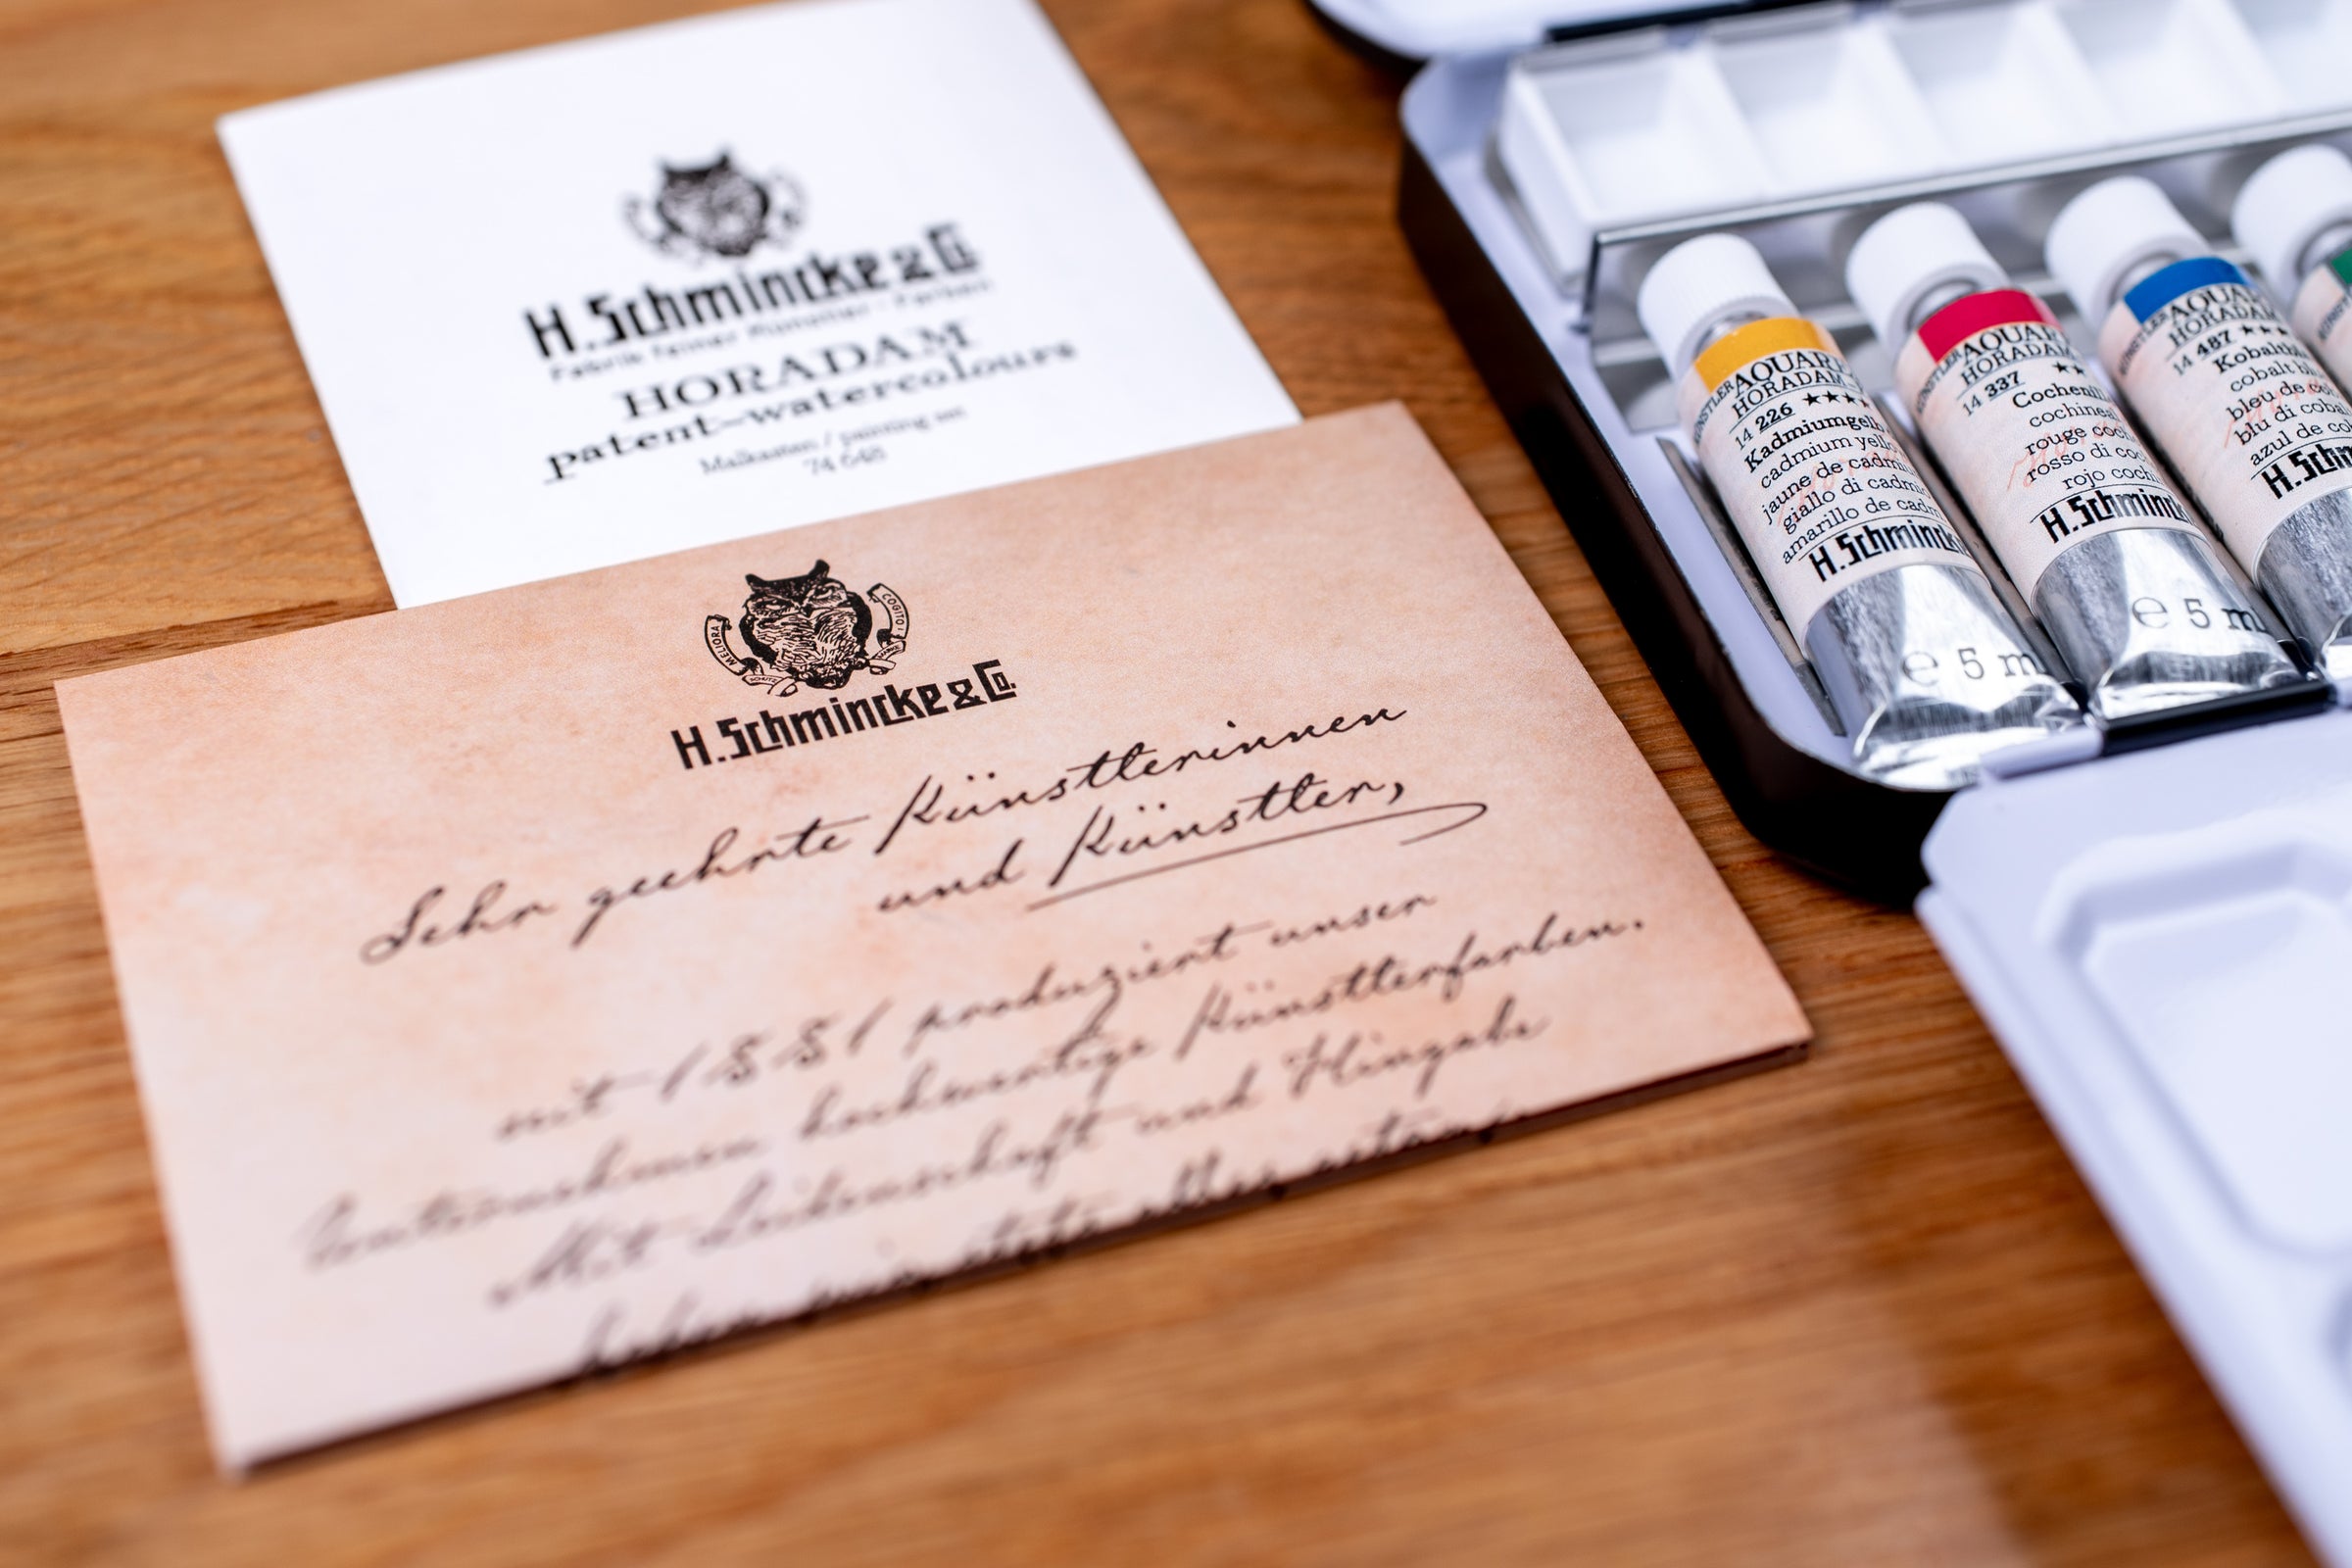 H. Schmincke & Co.
Fabrik feinster Künstler-Farben
HORADAM
patent-watercolours
Malkasten / painting set
74 648
MELIORA
COGITO
H. Schmincke & Co.
Sehr geehrte Künstlerinnen
und Künstler,
seit 1881 produziert unser
Unternehmen hochwertige Künstlerfarben.
Mit Leidenschaft und Hingabe
haben wir stets alles getan,
AQUAR
HORADAM
14 226 ★★★★
Kadmiumgelb
cadmium yello
jaune de cadmiu
giallo di cadmi
amarillo de cad
H. Schmincke
℮ 5 m
AQUAR
HORADAM
14 337 ★★
Cochenill
cochineal
rouge coch
rosso di coc
rojo coch
H. Schminck
℮ 5 ml
AQUA
HORADAM
14 487 ★★★
Kobaltbl
cobalt bl
bleu de cob
blu di coba
azul de co
H. Schm